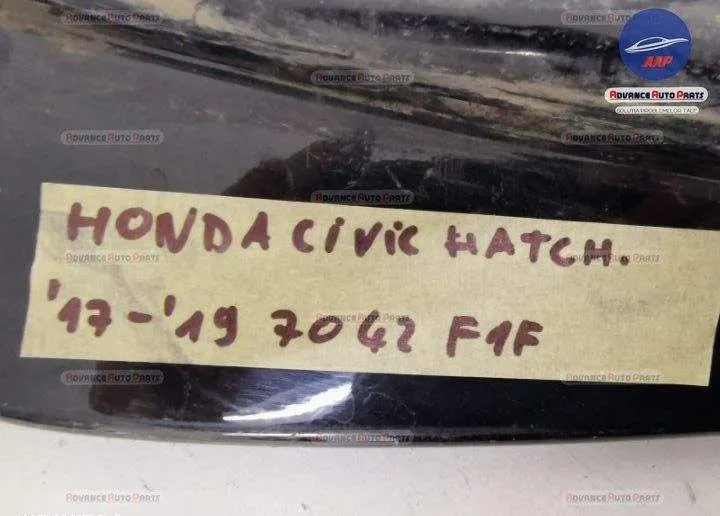 AAP
ADVANCE AUTO PARTS
SOLUTIA PROBLEMELOR TALE!
HONDA CIVIC HATCH.
'17-'19 7042 F1F